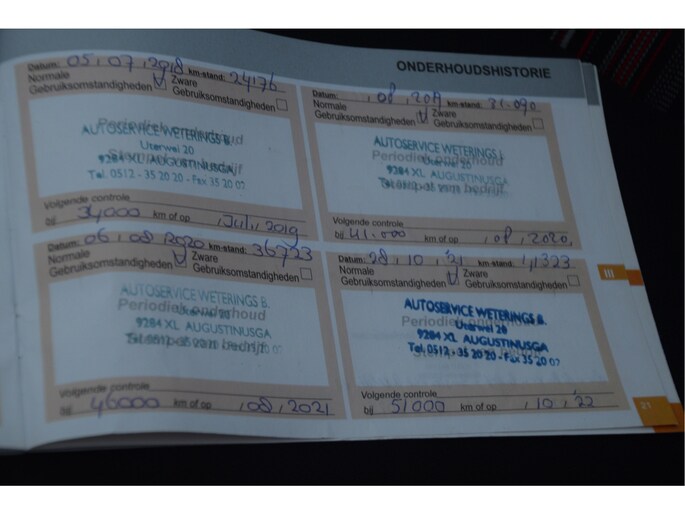 ONDERHOUDSHISTORIE
Datum: 05, 07, 2018 km-stand: 24176
Normale Zware
Gebruiksomstandigheden Gebruiksomstandigheden
Periodiek onderhoud
AUTOSERVICE WETERINGS B.
Uterwei 20
9284 XL AUGUSTINUSGA
Tel. 0512 - 35 20 20 - Fax 35 20 07
Volgende controle
bij 34000 km of op , Juli, 2019
Datum: , 08, km-stand:
Normale Zware
Gebruiksomstandigheden Gebruiksomstandigheden
AUTOSERVICE WETERINGS
Periodiek onderhoud
Uterwei 20
9284 XL AUGUSTINUSGA
Stempel van bedrijf
Volgende controle
bij 41.000 km of op , 08, 2020,
Datum: 06, 08, 2020 km-stand: 36723
Normale Zware
Gebruiksomstandigheden Gebruiksomstandigheden
AUTOSERVICE WETERINGS B.
Periodiek onderhoud
Uterwei 20
9284 XL AUGUSTINUSGA
Stempel van bedrijf
Volgende controle
bij 46000 km of op , 08, 2021
Datum: 28, 10, '21 km-stand:
Normale Zware
Gebruiksomstandigheden Gebruiksomstandigheden
AUTOSERVICE WETERINGS B.
Periodiek onderhoud
Uterwei 20
9284 XL AUGUSTINUSGA
Tel. 0512 - 35 20 20 - Fax 35 20 07
Volgende controle
bij 51000 km of op , 10, '22
III
21